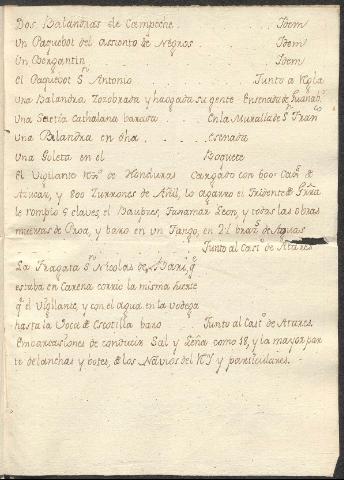 Dos Balandras de Campeche . . . . Idem
Un Paquebot del assiento de Negros . . . Idem
Un Bergantin . . . . Idem
El Paquebot Sn Antonio . . . Junto a Regla
Una Balandra Zozobrada y haogada su gente Ensenada de Guanabo
Una Saetia Cathalana barada . . . En la Muralla de Sn Fran
Una Balandra en dha . . . . esenada
Una Goleta en el . . . Boquete
El Vigilante de Honduras Cargado con 600 Cax
Azucar, y 800 Zurrones de Añil, lo agarro el Tridente
le rompio el Baupres, Leon, y todas las obras
muertas de Proa, y baro en un Fango, en 2 braz de Aguas
Junto al Casto de Atares
La Fragata Sn Nicolas de Bari, q
estaba en Carena corrio la misma suerte
q el Vigilante, y con el agua en la vodega
hasta la Voca de Escotilla baro . . Junto al Casto de Atares.
Embarcasiones de conducir Sal y Leña como 18, y la mayor par
te de lanchas y botes, de los Navios del Rey y particulares.